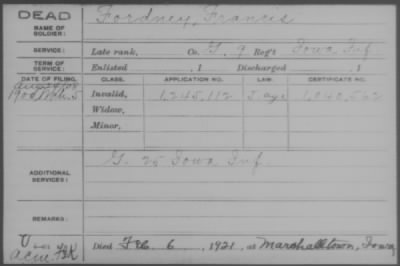 DEAD
NAME OF SOLDIER:
Fordney, Francis
SERVICE:
Late rank, Co. G, 9 Reg't Iowa Inf.
TERM OF SERVICE:
Enlisted , 1 Discharged , 1
DATE OF FILING. CLASS. APPLICATION NO. LAW. CERTIFICATE NO.
1900 Feb. 5 Invalid, 1,245,112
Widow,
Minor,
ADDITIONAL SERVICES:
G. 25 Iowa Inf.
REMARKS:
Died Feb 6, 1921, at Marshalltown, Iowa